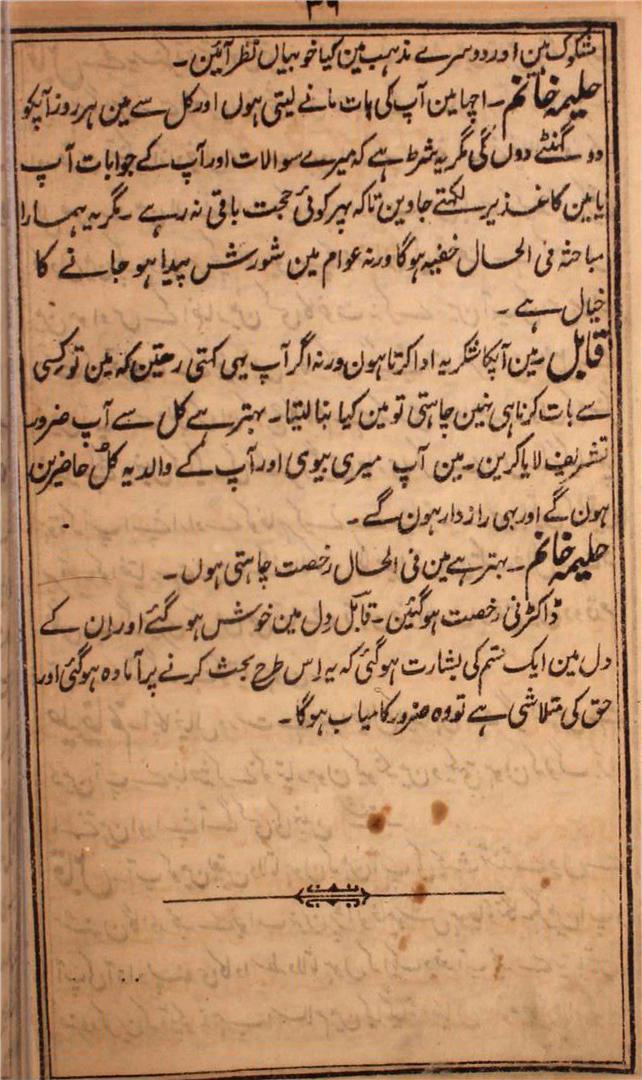 ۳۶
مشکوک ہین اور دوسرے مذہب مین کیا خوبیان نظر آئین۔
حلیمہ خانم۔ اچھا مین آپ کی بات مانے لیتی ہوں اور کل سے مین ہر روز آپکو
دو گھنٹے دوں گی مگر یہ شرط ہے کہ میرے سوالات اور آپ کے جوابات آپ
یا مین کاغذ پر لکھتے جاوین تاکہ پھر کوئی حجت باقی نہ رہے۔ مگر یہ ہمارا
مباحثہ فی الحال خفیہ ہوگا ورنہ عوام مین شورش پیدا ہو جانے کا
خیال ہے۔
قابل۔ مین آپکا شکریہ ادا کرتا ہون ورنہ اگر آپ یہی کہتی رہتین کہ مین تو کسی
سے بات کرنا ہی نہین چاہتی تو مین کیا بنا لیتا۔ بہتر ہے کل سے آپ ضرور
تشریف لایا کرین۔ مین آپ میری بیوی اور آپ کے والد یہ کل حاضرین
ہون گے اور یہی رازدار ہون گے۔
حلیمہ خانم۔ بہتر ہے مین فی الحال رخصت چاہتی ہوں۔
ڈاکٹرنی رخصت ہوگئین۔ قابل دل مین خوش ہو گئے اور ان کے
دل مین ایک قسم کی بشارت ہوگئی کہ یہ اس طرح بحث کرنے پر آمادہ ہوگئی اور
حق کی متلاشی ہے تو وہ ضرور کامیاب ہوگا۔